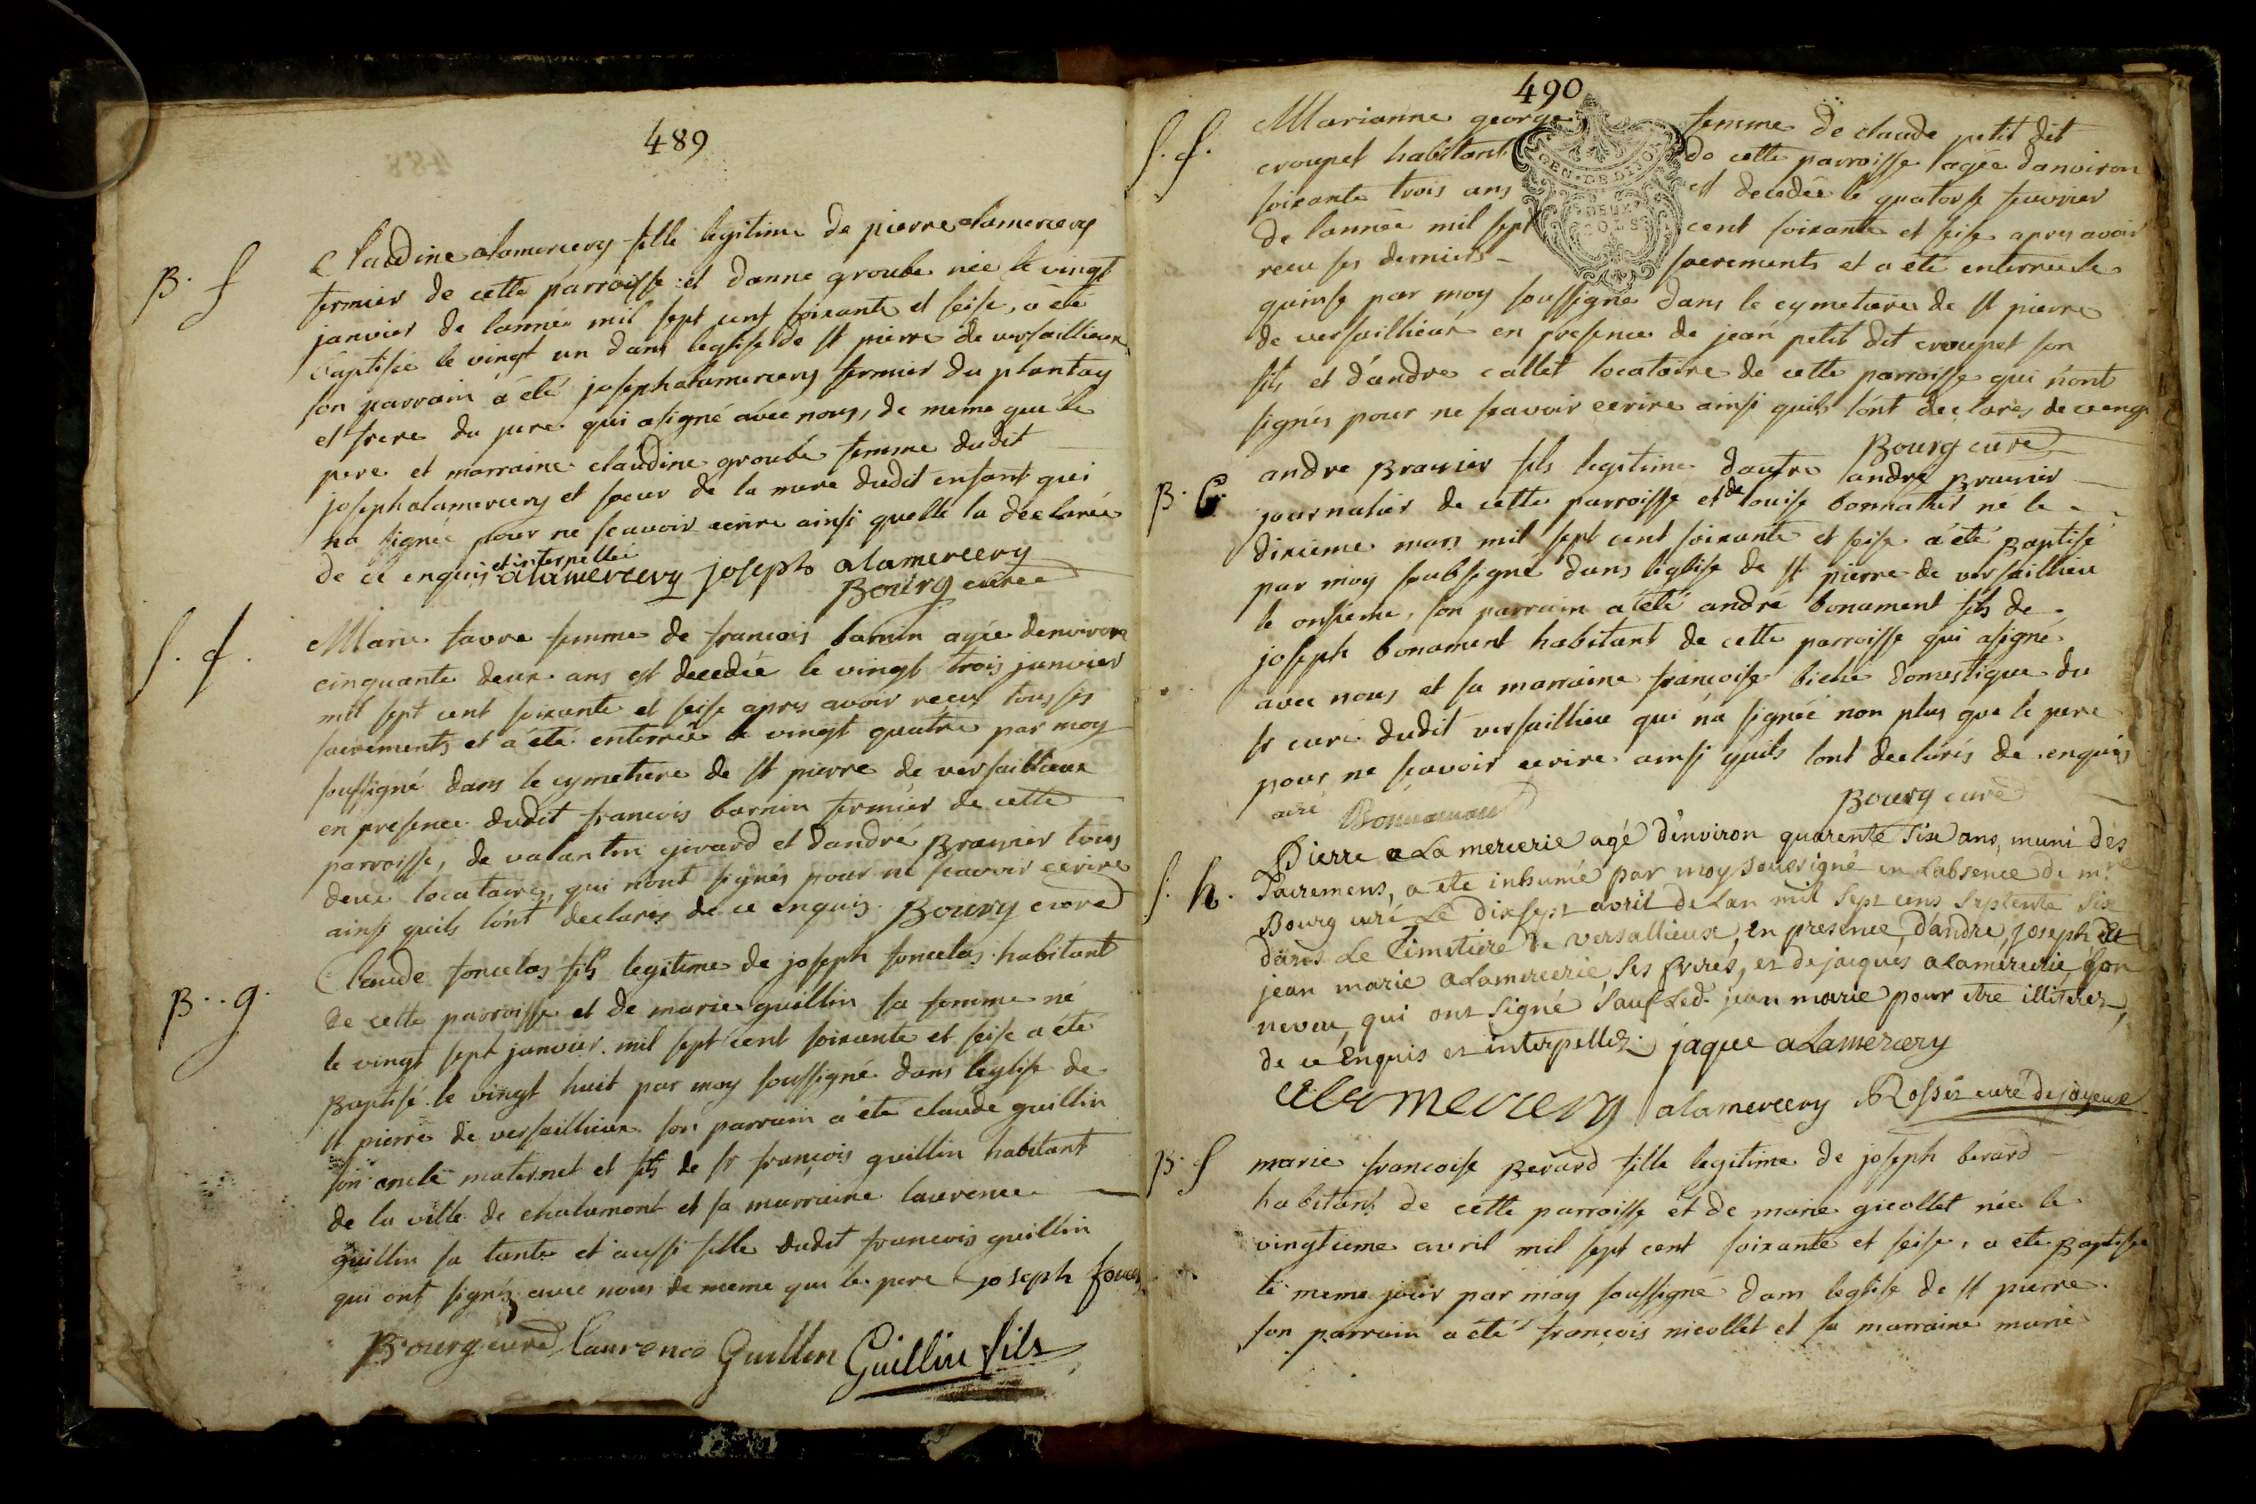 489
B. f
Claudine alamercery fille legitime de pierre alamercery
fermier de cette parroisse et danne groube née le vingt
janvier de lannée mil sept cent soixante et seise, a été
baptisée le vingt un dans leglise de st pierre de versaillieux
son parrain a été joseph alamercery fermier du plantay
et frere du pere qui a signé avec nous, de meme que le
pere et marraine claudine groube femme dudit
joseph alamercery et soeur de la mere dudit enfant qui
na signée pour ne scavoir ecrire ainsi quelle la declarée
de ce enquis et interpellée alamercery joseph alamercery
Bourg curé
S. f.
Marie favre femme de francois barnin agée denviron
cinquante deux ans est decedée le vingt trois janvier
mil sept cent soixante et seise apres avoir recu tous ses
sacrements et a été enterrée le vingt quatre par moy
soussigné dans le cymetiere de st pierre de versaillieux
en presence dudit francois barnin fermier de cette
parroisse, de valantin girard et dandré Brasnier tous
deux locataires, qui nont signés pour ne scavoir ecrire
ainsi quils lont declarés de ce enquis. Bourg curé
B. g.
Claude foncelas fils legitime de joseph foncelas habitant
de cette parroisse et de marie guillin sa femme né
le vingt sept janvier mil sept cent soixante et seise a été
Baptisé le vingt huit par moy soussigné dans leglise de
st pierre de versaillieux son parrain a été claude guillin
son oncle maternel et fils de sr françois guillin habitant
de la ville de chalamont et sa marraine laurence
guillin sa tante et aussi fille dudit francois guillin
qui ont signés avec nous de meme que le pere joseph
Bourg curé laurence Guillin Guillin fils
490
S. f.
Marianne george femme de claude petit dit
croupet habitant de cette parroisse agée danviron
soixante trois ans est decedée le quatorse fevrier
de lannée mil sept cent soixante et seise apres avoir
recu ses derniers sacrements et a été enterrée le
GEN. DE DIJON
DEUX
SOLS
quinse par moy soussigné dans le cymetiere de st pierre
de versaillieux en presence de jean petit dit croupet son
fils et d'andre callet locataire de cette parroisse qui nont
signés pour ne scavoir ecrire ainsi quils lont declarés de ce enq
Bourg curé
B. G.
andre Brasnier fils legitime dautre andre Brasnier
journalier de cette parroisse et de louise bonnathier né le
dixieme mars mil sept cent soixante et seise a été Baptisé
par moy soubsigné dans leglise de st pierre de versaillieu
le onsieme. son parrain a été andré bonament fils de
joseph bonament habitant de cette parroisse qui a signé
avec nous et sa marraine françoise domestique du
sr curé dudit versaillieu qui na signée non plus que le pere
pour ne scavoir ecrire ainsi quils lont declarés de enquis
Bourg curé
S. h.
Pierre a La mercerie agé d'environ quarente six ans, muni des
Sacremens, a ete inhumé par moy soussigné en Labsence de mr.
Bourg curé Le dix sept avril de Lan mil sept cens septente six
dans Le Cimetiere de versallieux, en presence d'andre, joseph et
jean marie aLamercerie, ses freres, et de jacques aLamercerie son
neveu, qui ont signé sauf Led. jean marie pour etre illiterez,
de ce enquis et interpellez. jaque aLamercery
alamercery alamercery Rosset curé de joyeux
B. f
marie francoise Berard fille legitime de joseph berard
habitant de cette parroisse et de marie gicollet née le
vingtieme avril mil sept cent soixante et seise, a ete Baptisée
le meme jour par moy soussigné dans leglise de st pierre.
son parrain a été françois nicollet et sa marraine marie